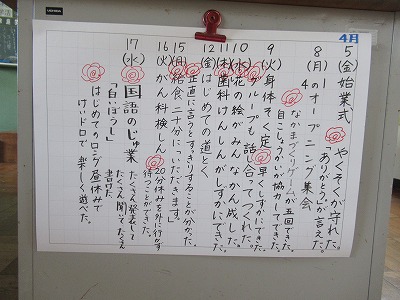 4月
5(金)始業式 やくそくが守れた。
「ありがとう」が言えた。
8(月)1の4のオープニング集会
なかまづくりゲームが五回できた。
自こしょうかいが協力してできた。
9(火)身体そく定 早くしずかにできた。
グループも話し合ってつくれた。
10(水)花の絵がみんなかん成した。
11(木)歯科けんしんがしずかにできた。
12(金)はじめての道とく
正直に言うとすっきりすることが分かった。
15(月)給食、二十分に「いただきます。」
16(火)かん科検しん 20分休みを外に行かず
待つことができた。
17(水)国語のじゅ業
「白いぼうし」 たくさん発表して
たくさん聞いてたくさん
書けた。
はじめてのロング昼休みで
けいドロで楽しく遊べた。